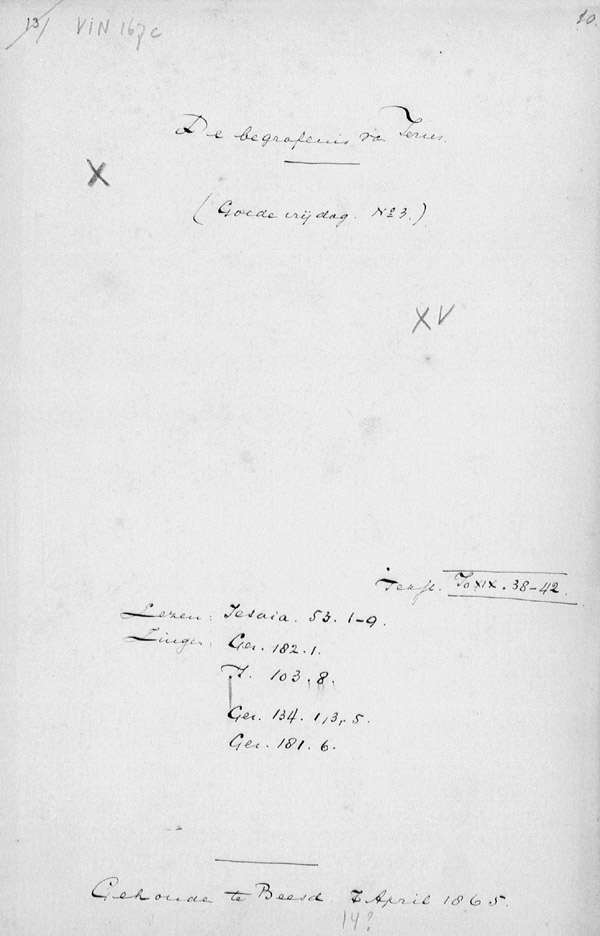 13/ VIN 167c 20.
De begrafenis va Jezus.
X
(Goede vrijdag. No 3.)
XV
Text. Jo XIX. 38-42.
Lezen: Jesaia. 53. 1-9.
Zingen: Gez. 182. 1.
103. 8.
Gez. 134. 1, 3, 5.
Gez. 181. 6.
Gehouden te Beesd. 7 April 1865.
14?